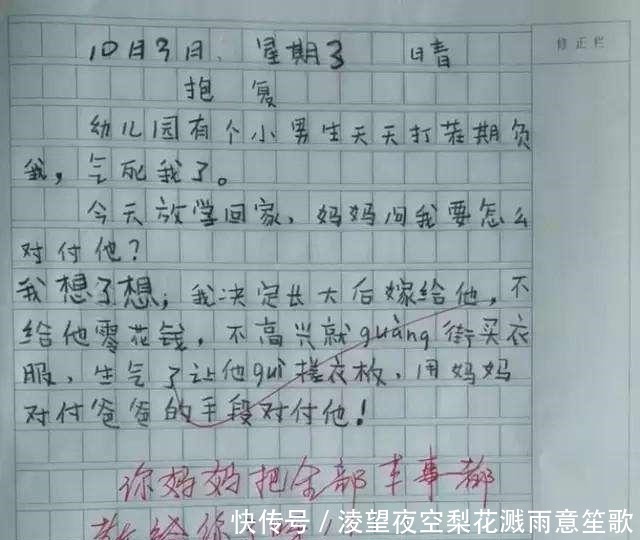 10月3日、星期3 晴
修正栏
抱复
幼儿园有个小男生天天打茬期负
我，气死我了。
今天放学回家、妈妈问我要怎么
对付他？
我想了想；我决定长大后嫁给他，不
给他零花钱，不高兴就guàng街买衣
服、生气了让他guì搓衣板、用妈妈
对付爸爸的手段对付他！
你妈妈把全部本事都
教给你
快传号/凌望夜空梨花溅雨意笙歌